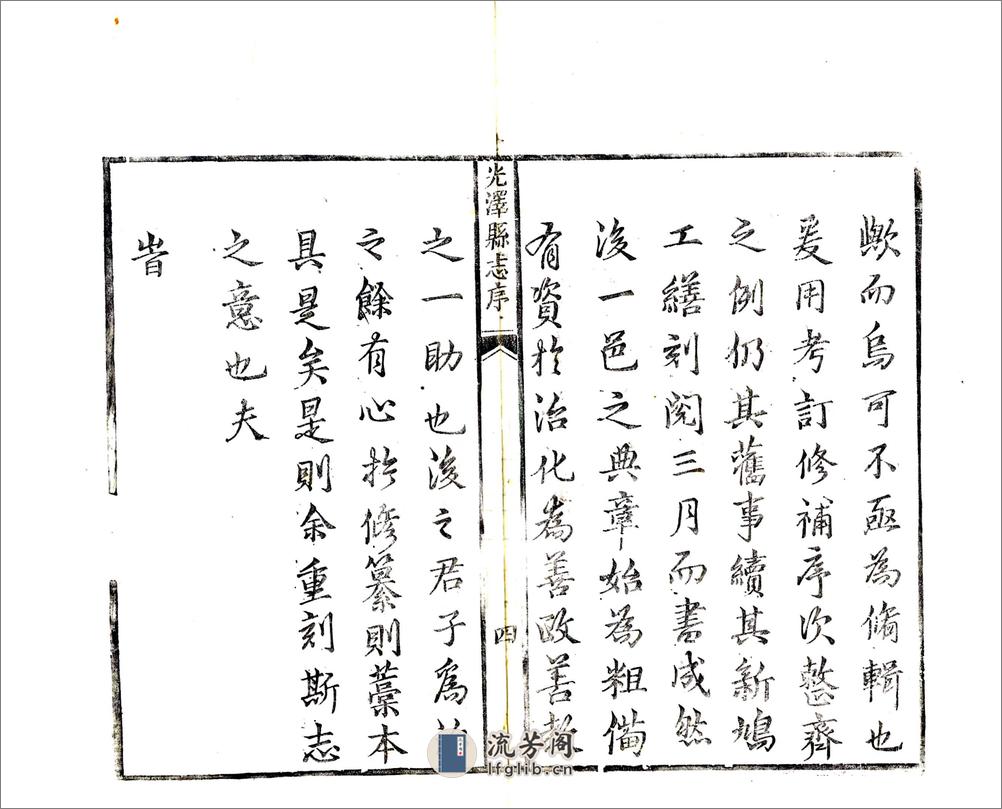 歟而烏可不亟為脩輯也
爰用考訂修補序次整齊
之例仍其舊事續其新鳩
工繕刻閱三月而書成然
後一邑之典章始為粗備
有資於治化為善政善教
光澤縣志序
四
之一助也後之君子為治
之餘有心於修纂則藁本
具是矣是則余重刻斯志
之意也夫
旹
流芳阁
lfglib.cn